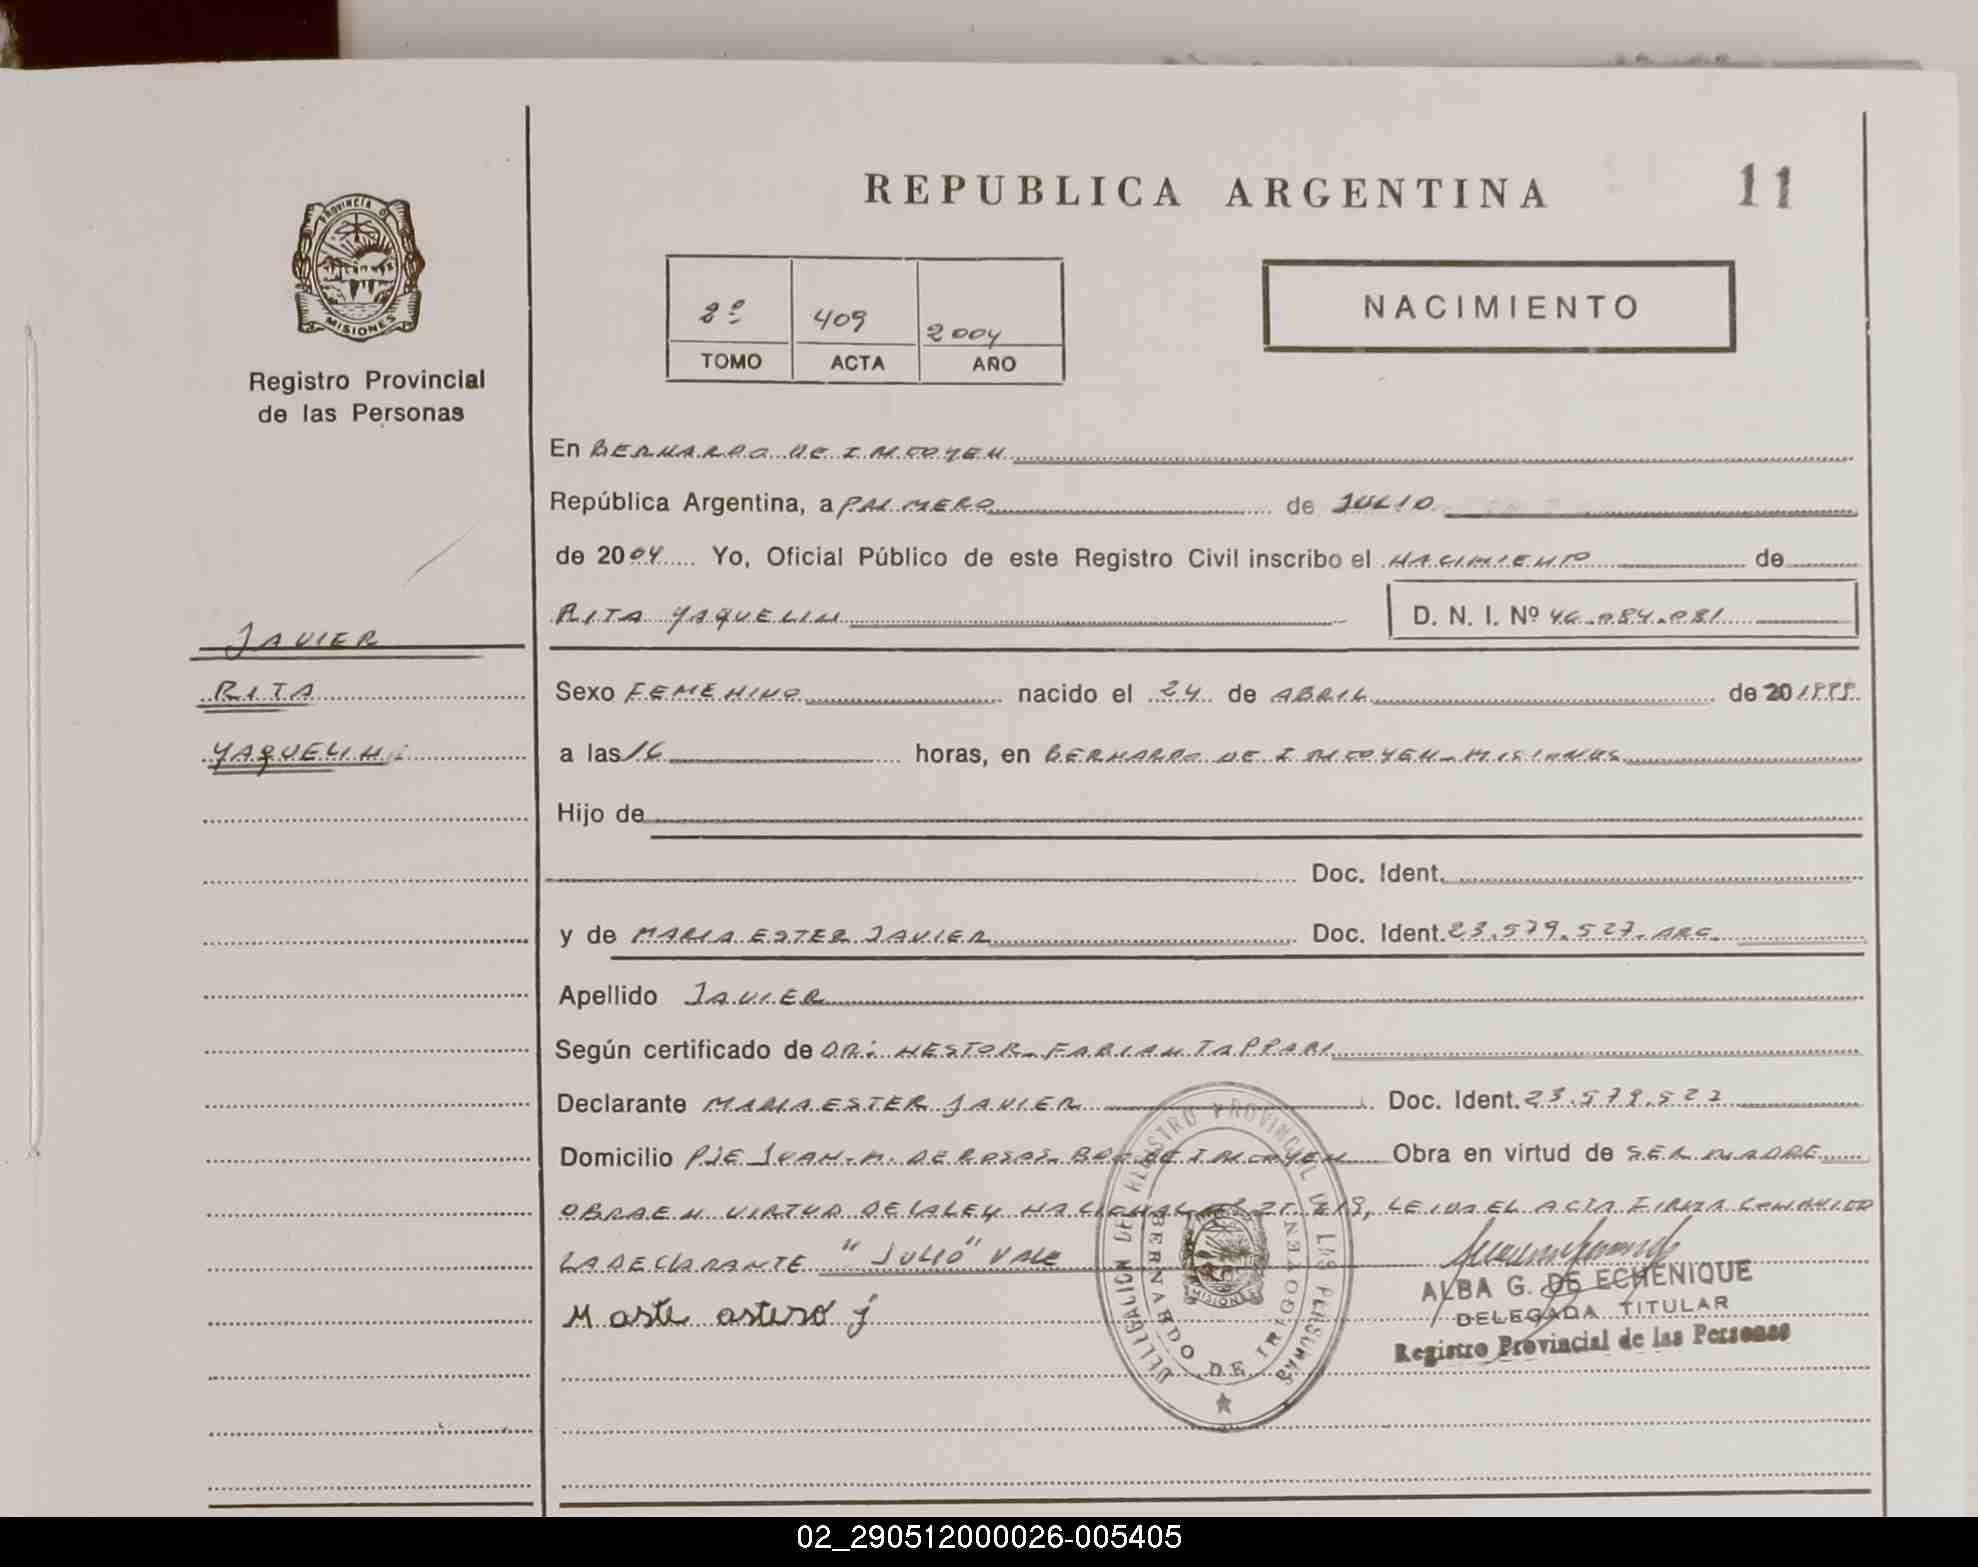 REPUBLICA ARGENTINA
11
PROVINCIA DE
MISIONES
Registro Provincial
de las Personas
2º 409 2004
TOMO ACTA AÑO
NACIMIENTO
En BERNARDO DE IRIGOYEN
República Argentina, a PRIMERO de JULIO
de 2004 Yo, Oficial Público de este Registro Civil inscribo el NACIMIENTO de
RITA YAQUELIN D. N. I. Nº 46.084.081
JAVIER
RITA
YAQUELIN
Sexo FEMENINO nacido el 24 de ABRIL de 20 1999
a las 16 horas, en BERNARDO DE IRIGOYEN - MISIONES
Hijo de
Doc. Ident.
y de MARIA ESTER JAVIER Doc. Ident. 23.579.527. ARG.
Apellido JAVIER
Según certificado de DR: NESTOR FABIAN TAPPARI
Declarante MARIA ESTER JAVIER Doc. Ident. 23.579.527
Domicilio PJE JUAN M. DE ROSAS. BDO DE IRIGOYEN Obra en virtud de SER MADRE
OBRA EN VIRTUD DE LA LEY NACIONAL Nº LEIDA EL ACTA FIRMA CONMIGO
LA DECLARANTE "JULIO" VALE
M aste asterso j
DELEGACION DEL REGISTRO PROVINCIAL DE LAS PERSONAS
BERNARDO DE IRIGOYEN
MISIONES
ALBA G. DE ECHENIQUE
DELEGADA TITULAR
Registro Provincial de las Personas
02_290512000026-005405